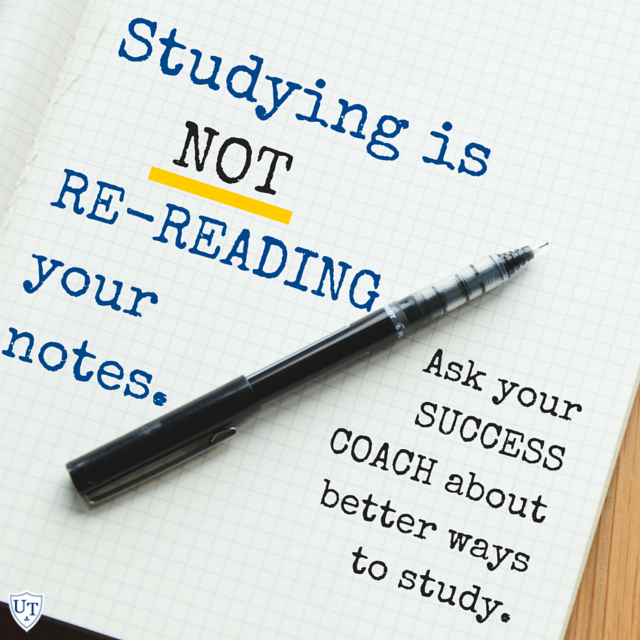 Studying is
NOT
RE-READING
your
notes.
Ask your
SUCCESS
COACH about
better ways
to study.
UT